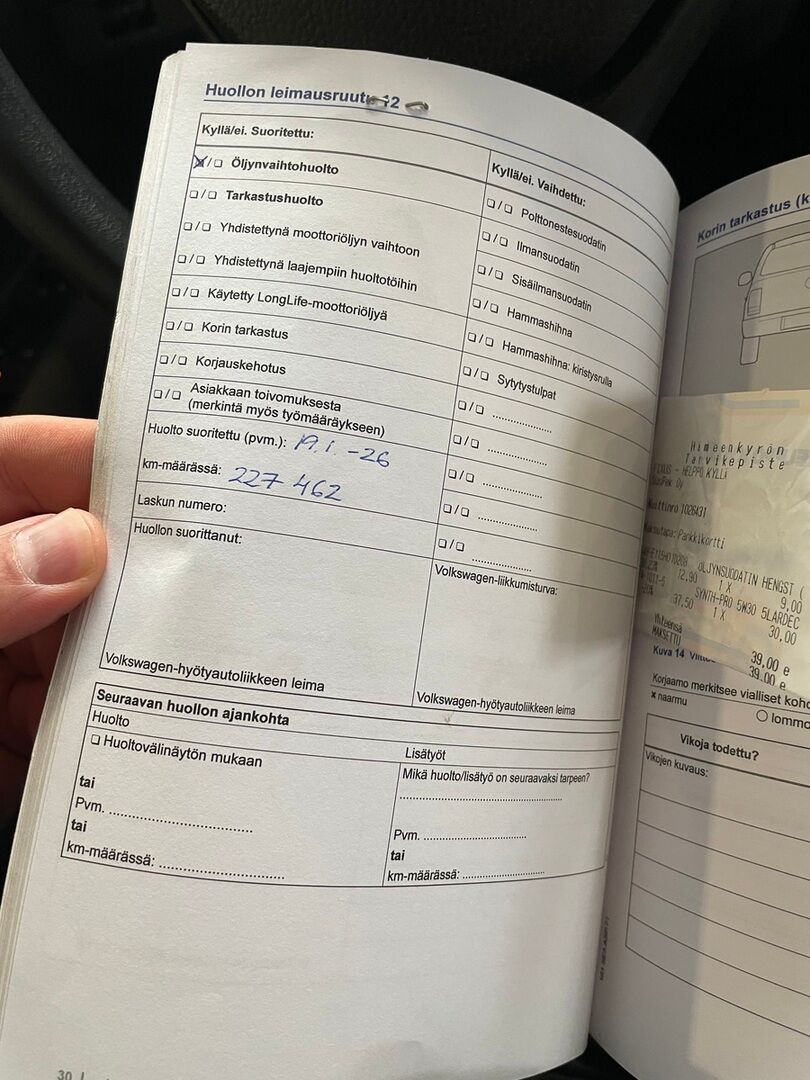 Huollon leimausruutu 12
Kyllä/ei. Suoritettu:
☒/❏ Öljynvaihtohuolto
❏/❏ Tarkastushuolto
❏/❏ Yhdistettynä moottoriöljyn vaihtoon
❏/❏ Yhdistettynä laajempiin huoltotöihin
❏/❏ Käytetty LongLife-moottoriöljyä
❏/❏ Korin tarkastus
❏/❏ Korjauskehotus
❏/❏ Asiakkaan toivomuksesta
(merkintä myös työmääräykseen)
Huolto suoritettu (pvm.): 19.1.-26
km-määrässä: 227 462
Laskun numero:
Huollon suorittanut:
Volkswagen-hyötyautoliikkeen leima
Kyllä/ei. Vaihdettu:
❏/❏ Polttonestesuodatin
❏/❏ Ilmansuodatin
❏/❏ Sisäilmansuodatin
❏/❏ Hammashihna
❏/❏ Hammashihna: kiristysrulla
❏/❏ Sytytystulpat
❏/❏ ....................
❏/❏ ....................
❏/❏ ....................
❏/❏ ....................
❏/❏ ....................
Volkswagen-liikkumisturva:
Volkswagen-hyötyautoliikkeen leima
Seuraavan huollon ajankohta
Huolto
❏ Huoltovälinäytön mukaan
tai
Pvm. ....................
tai
km-määrässä: ....................
Lisätyöt
Mikä huolto/lisätyö on seuraavaksi tarpeen?
....................
Pvm. ....................
tai
km-määrässä: ....................
30
Korin tarkastus (k
Hämeenkyrön
Tarvikepiste
- HELPPO KYLLÄ
Oy
1026431
Maksutapa: Pankkikortti
ÖLJYNSUODATIN HENGST (
12,90 1 X 9,00
SYNTH-PRO 5W30 5LARDEC
37,50 1 X 30,00
Yhteensä 39,00 e
MAKSETTU 39,00 e
Kuva 14
Korjaamo merkitsee vialliset koh
x naarmu
○ lommo
Vikoja todettu?
Vikojen kuvaus: